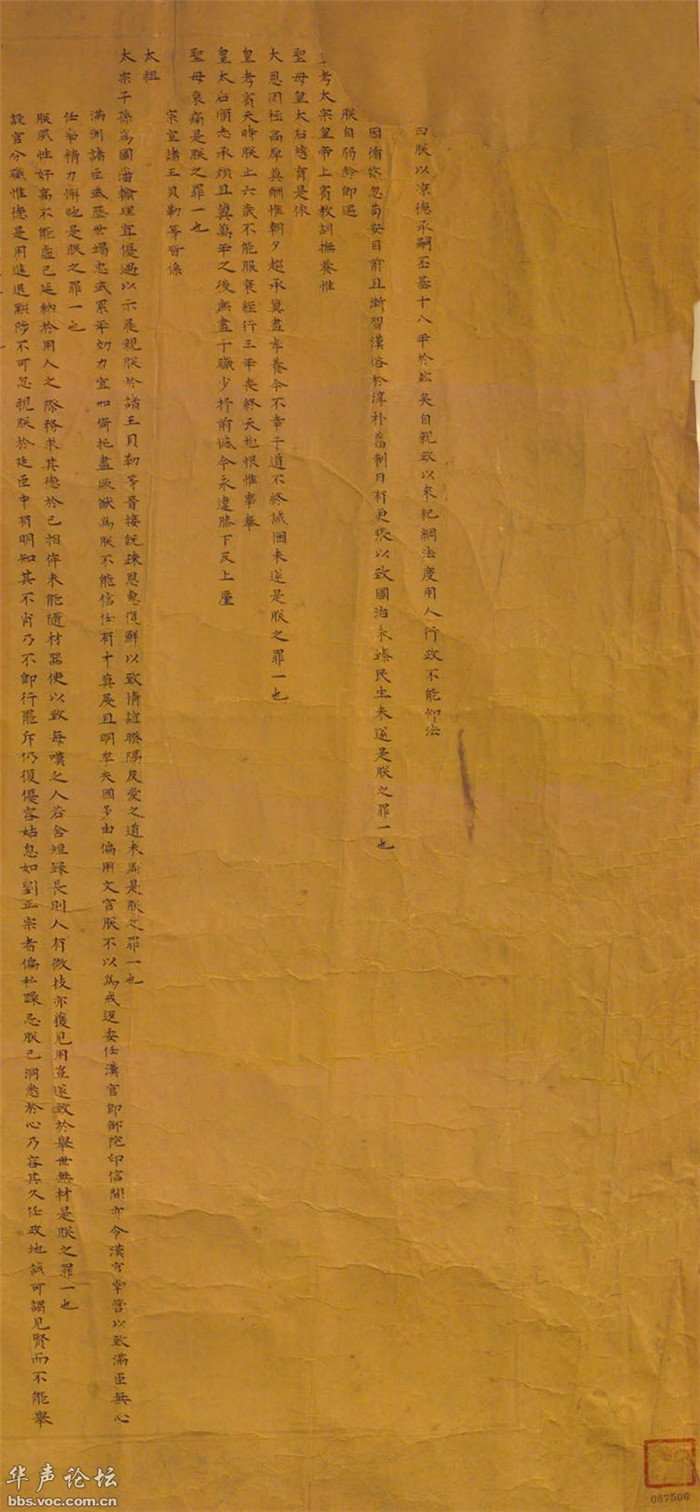 曰朕以凉德承嗣丕基十八年於茲矣自親政以來紀綱法度用人行政不能仰法
因循悠忽苟安目前且漸習漢俗於淳朴舊制日有更張以致國治未臻民生未遂是朕之罪一也
朕自弱齡即遇
考太宗皇帝上賓教訓撫養惟
聖母皇太后慈育是依
大恩罔極高厚莫酬惟朝夕趨承冀盡孝養今不幸子道不終誠悃未遂是朕之罪一也
皇考賓天時朕止六歲不能服衰絰行三年喪終天抱恨惟事奉
皇太后順志承顏且冀萬年之後無盡子職少抒前憾今永違膝下反上廑
聖母哀痛是朕之罪一也
宗室諸王貝勒等皆係
太祖
太宗子孫為國藩翰理宜優遇以示展親朕於諸王貝勒等晉接既疎恩惠復鮮以致情誼暌隔友愛之道未周是朕之罪一也
滿洲諸臣或歷世竭忠或累年効力宜加倚托盡厥猷為朕不能信任有才莫展且明季失國多由偏用文官朕不以為戒返委任漢官即部院印信間亦令漢官掌管以致滿臣無心
任事精力懈弛是朕之罪一也
朕夙性好高不能虛己延納於用人之際務求其德於己相侔未能隨材器使以致每嘆乏人若舍短錄長則人有微技亦獲見用豈遂致於舉世無材是朕之罪一也
設官分職惟德是用進退黜陟不可忽視朕於廷臣中有明知其不肖乃不即行罷斥仍復優容姑息如劉正宗者偏私躁忌朕已洞悉於心乃容其久任政地誠可謂見賢而不能舉
087506
华声论坛
bbs.voc.com.cn